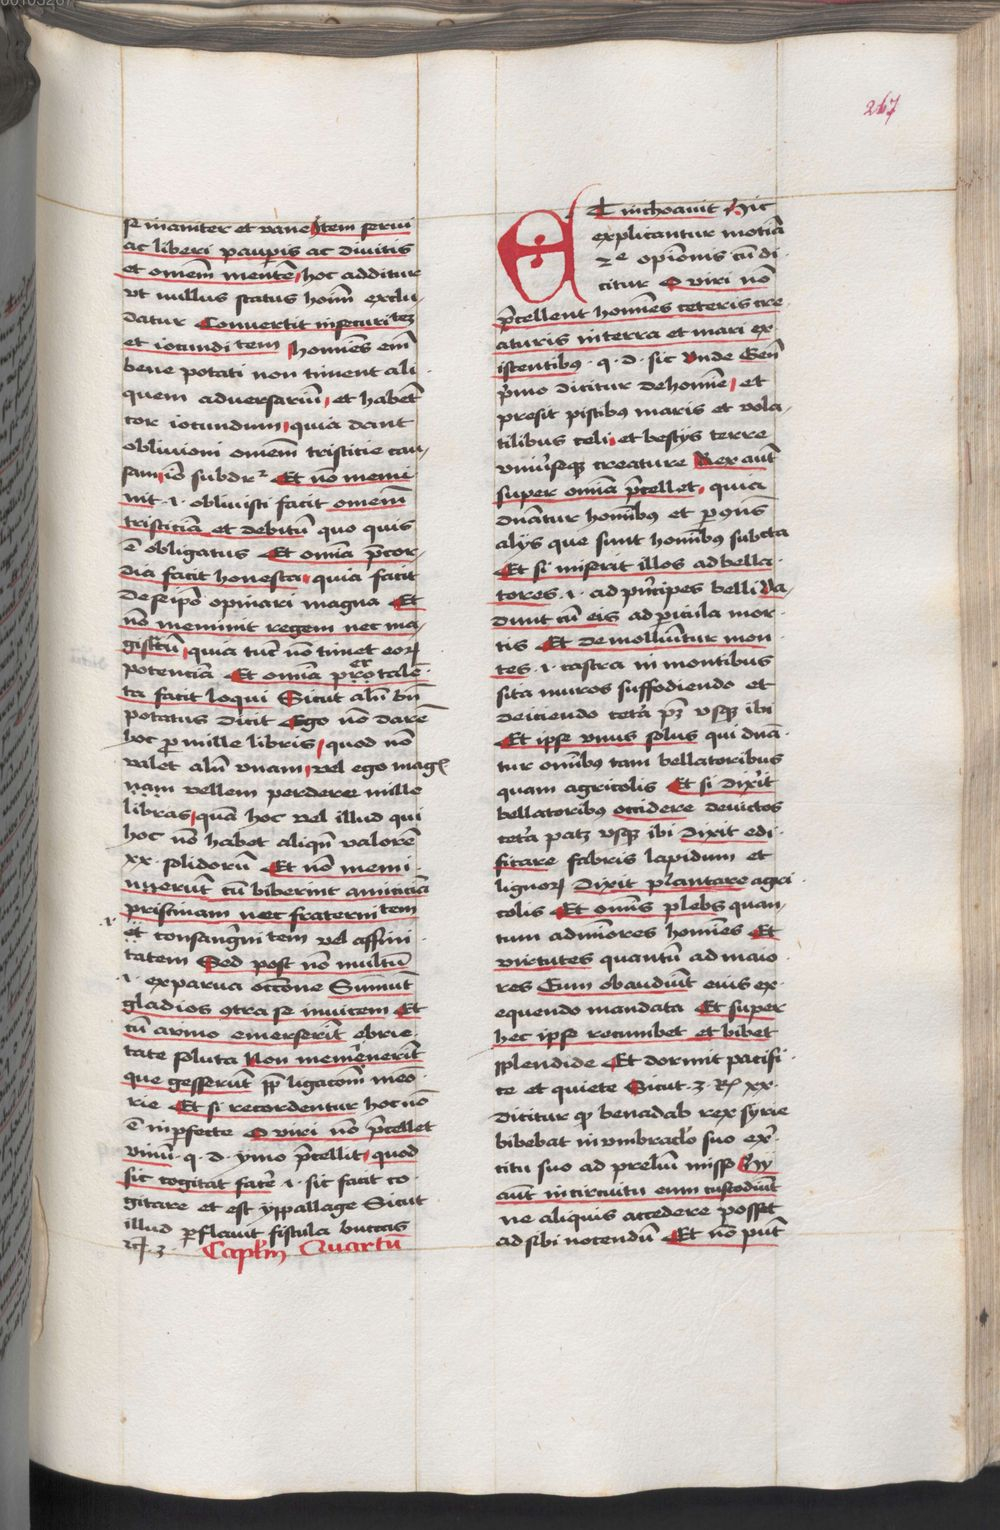 267
se inaniter et vane Item servi
ac liberi paup̄is ac divitis
et omēm mentē, hoc additur
vt nullus status hom̄ exclu-
datur Convertit in securitez
et iocunditem homīes em̄
bene potati non timent ali
quem adversariū, et habēt
cor iocundum, quia dant
oblivioni omēm tristicie cau-
sam, iō subdr2 Et nō memi
nit .i. oblivisci facit omēm
tristiciā et debitū quo quis
ē obligatus Et omīa p̄cor-
dia facit honesta, quia facit
de seip̄o opinari magna Et
nō meminit regem nec ma-
gistrū, quia tūc nō timet eoꝝ
potenciā Et omīa per talē
ta facit loqui Sicut alī bn̄
potatus dicit Ego nō darē
hoc p̱ mille libris, quod nō
valet alī vnam, vel ego mag
nam vellem perdere mille
libras, quā hoc vel illud qui
hoc nō habet aliqn̄ valorē
xx. solidorū Et nō memi
nerūt cū biberint amiciciā
pristinam nec fraternitem
et consangīnitem vel affini
tatem Sed post nō multū
.i. ex parua occōne Sumūt
gladios 9tra se invicem Et
cū a vino emerserīt ebrie
tate soluta Non memīnerīt
que gesserūt ꝓp̄ ligacōm meō
rie Et si recordentur hoc nō
ē in p̱fecte O viri nō p̄cellet
vinū .q.d. ymo p̄cellit, quod
sic cogitat facē .i. sic facit co
gitare et est ypallage Sicut
illud p̱flavit fistula buccas
Capl̄m Quartū
ET inchoavit Hic
explicantur motiā
2e opīonis cū di
citur O viri nō
p̄cellent homīes ceteris cre
aturis in terra et mari ex
istentibꝰ .q.d. sic Vnde Gen̄
p̄mo dicitur de homīe, et
presit piscibꝰ maris et vola-
tilibus celi, et bestijs terre
vniūseqꝫ creature Rex aūt
super omīa p̄cellet, quia
dnātur homībꝰ et
alijs que sunt homībꝰ subiecta
Et si miserit illos ad bella
tores .i. ad prīcipes belli Va-
dunt cū eis ad picula mor
tis Et demoliūtur mon
tes .i. castra in montibus
sita muros suffodiendo et
deiciendo cetā pꝫ vsqꝫ ibi
Et ipse vnus solus qui dnā
tur omībꝰ tam bellatoribus
quam agricolis Et si dixīt
bellatoribꝰ occidere devictos
cetā patꝫ vsqꝫ ibi dixit edi
ficare fabris lapidum et
lignoꝝ Dixit plantare agri
colis Et omīs plebs quan-
tum ad miōres homīes Et
virtutes quantū ad maio
res Eum obaudiūt eius ex
equendo mandata Et super
hec ipse recumbet et bibet
splendide Et dormit pacifi
ce et quiete Sicut .3. Rꝝ xx.
dicitur qꝫ benadab rex syrie
bibebat in vmbraclō suo exer
citu suo ad preliū misso Hij
aūt in circuitu eum custodiūt
ne aliquis accedere posset
ad sibi nocendū Et nō pn̄t